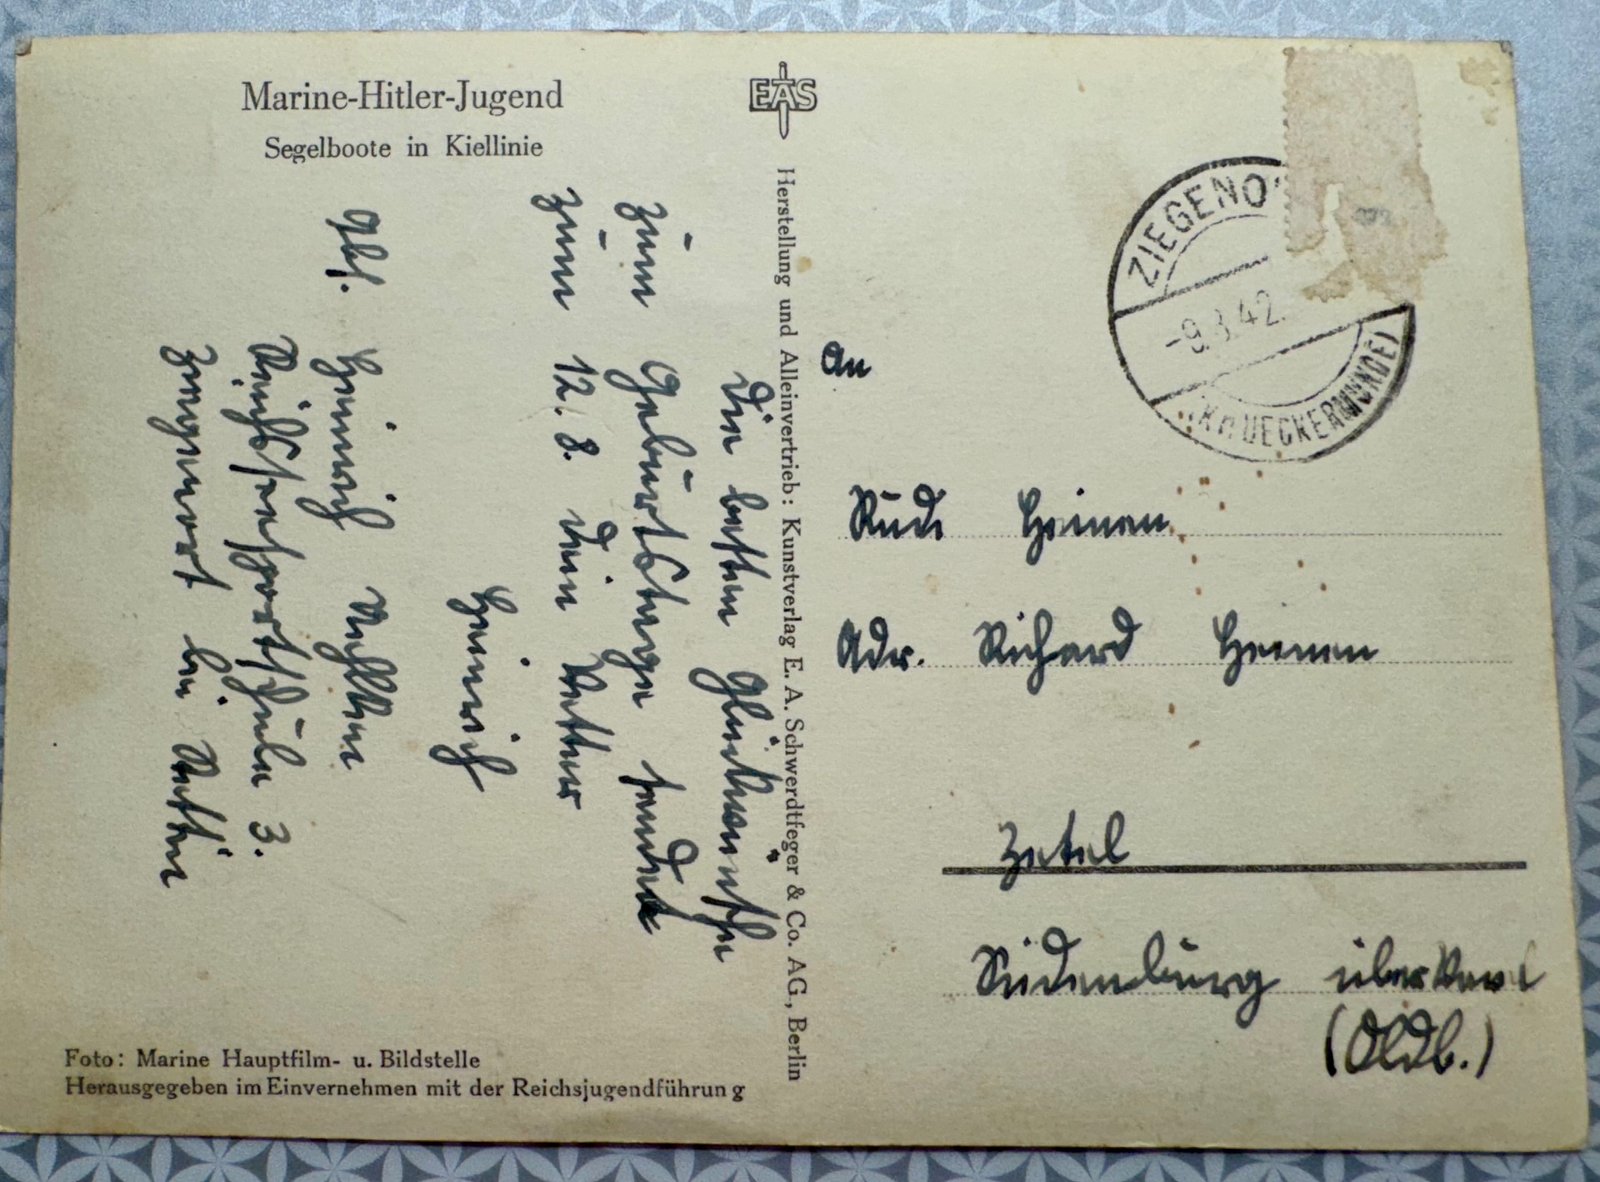 Marine-Hitler-Jugend
Segelboote in Kiellinie
EAS
Herstellung und Alleinvertrieb: Kunstverlag E. A. Schwerdtfeger & Co. AG., Berlin
Die besten Glückwünsche
zum Geburtstage sendet
zum 12. 8. Dein Vetter
Heinrich
Abs. Heinrich
Reichsseesportschule 3.
Ziegenort bei Stettin
Foto: Marine Hauptfilm- u. Bildstelle
Herausgegeben im Einvernehmen mit der Reichsjugendführung
ZIEGENO
-9.8.42.
UECKERMÜNDE)
An
Rudi Heinen
Adr. Richard Heinen
Zetel
Südenburg über Varel
(Oldb.)